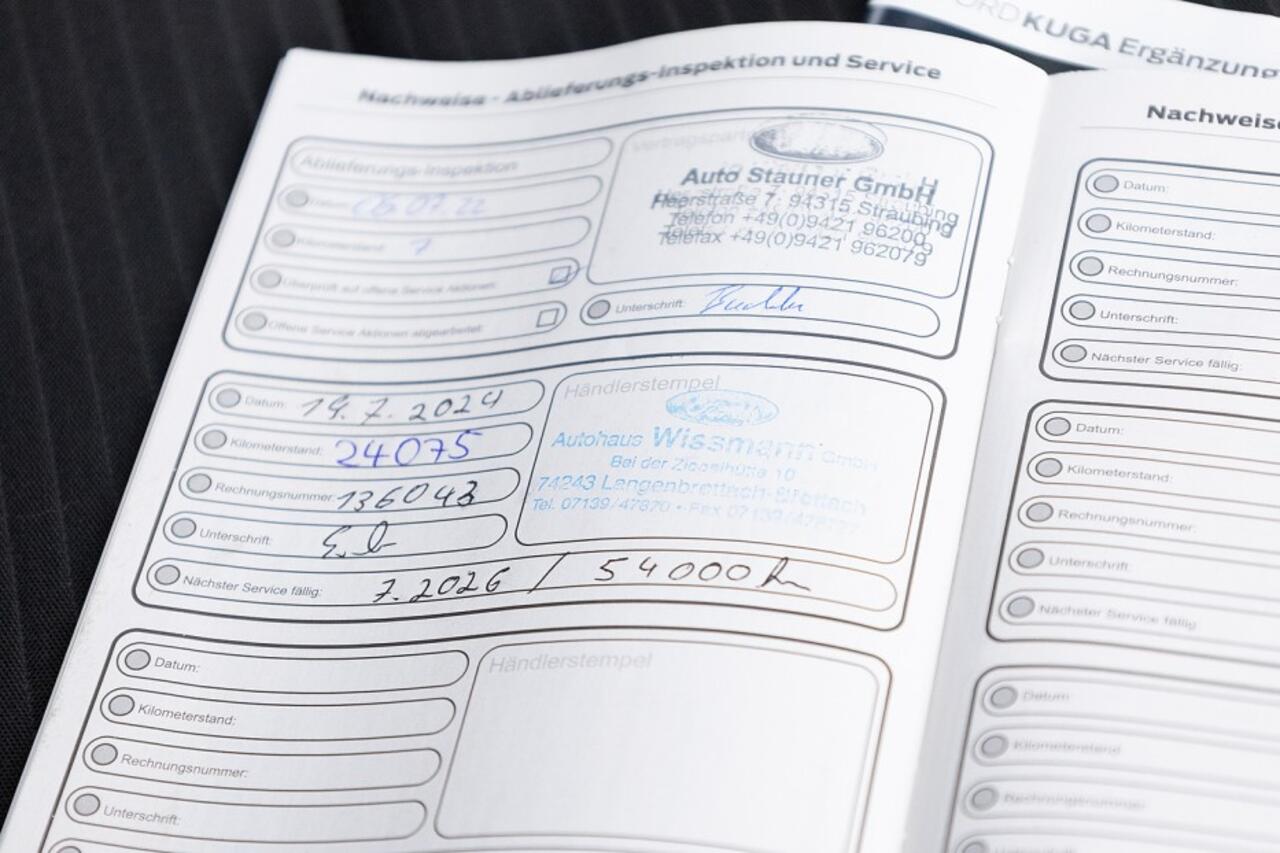 ORD KUGA Ergänzung
Nachweise - Ablieferungs-Inspektion und Service
Ablieferungs-Inspektion
Kilometerstand: 7
Überprüft auf offene Service Aktionen:
Offene Service Aktionen abgearbeitet:
Vertragspartner
Auto Stauner GmbH
Heerstraße 7, 94315 Straubing
Telefon +49(0)9421 96200
Telefax +49(0)9421 962079
Unterschrift:
Datum: 19.7.2024
Kilometerstand: 24075
Rechnungsnummer: 136043
Unterschrift:
Nächster Service fällig: 7.2026 / 54000 km
Händlerstempel
Autohaus Wissmann GmbH
Bei der Ziegelhütte 10
74243 Langenbrettach
Tel. 07139/47870 • Fax
Datum:
Kilometerstand:
Rechnungsnummer:
Unterschrift:
Händlerstempel
Nachweise
Datum:
Kilometerstand:
Rechnungsnummer:
Unterschrift:
Nächster Service fällig:
Datum:
Kilometerstand:
Rechnungsnummer:
Unterschrift:
Nächster Service fällig
Datum
Kilometerstand
Rechnungsnummer
Unterschrift